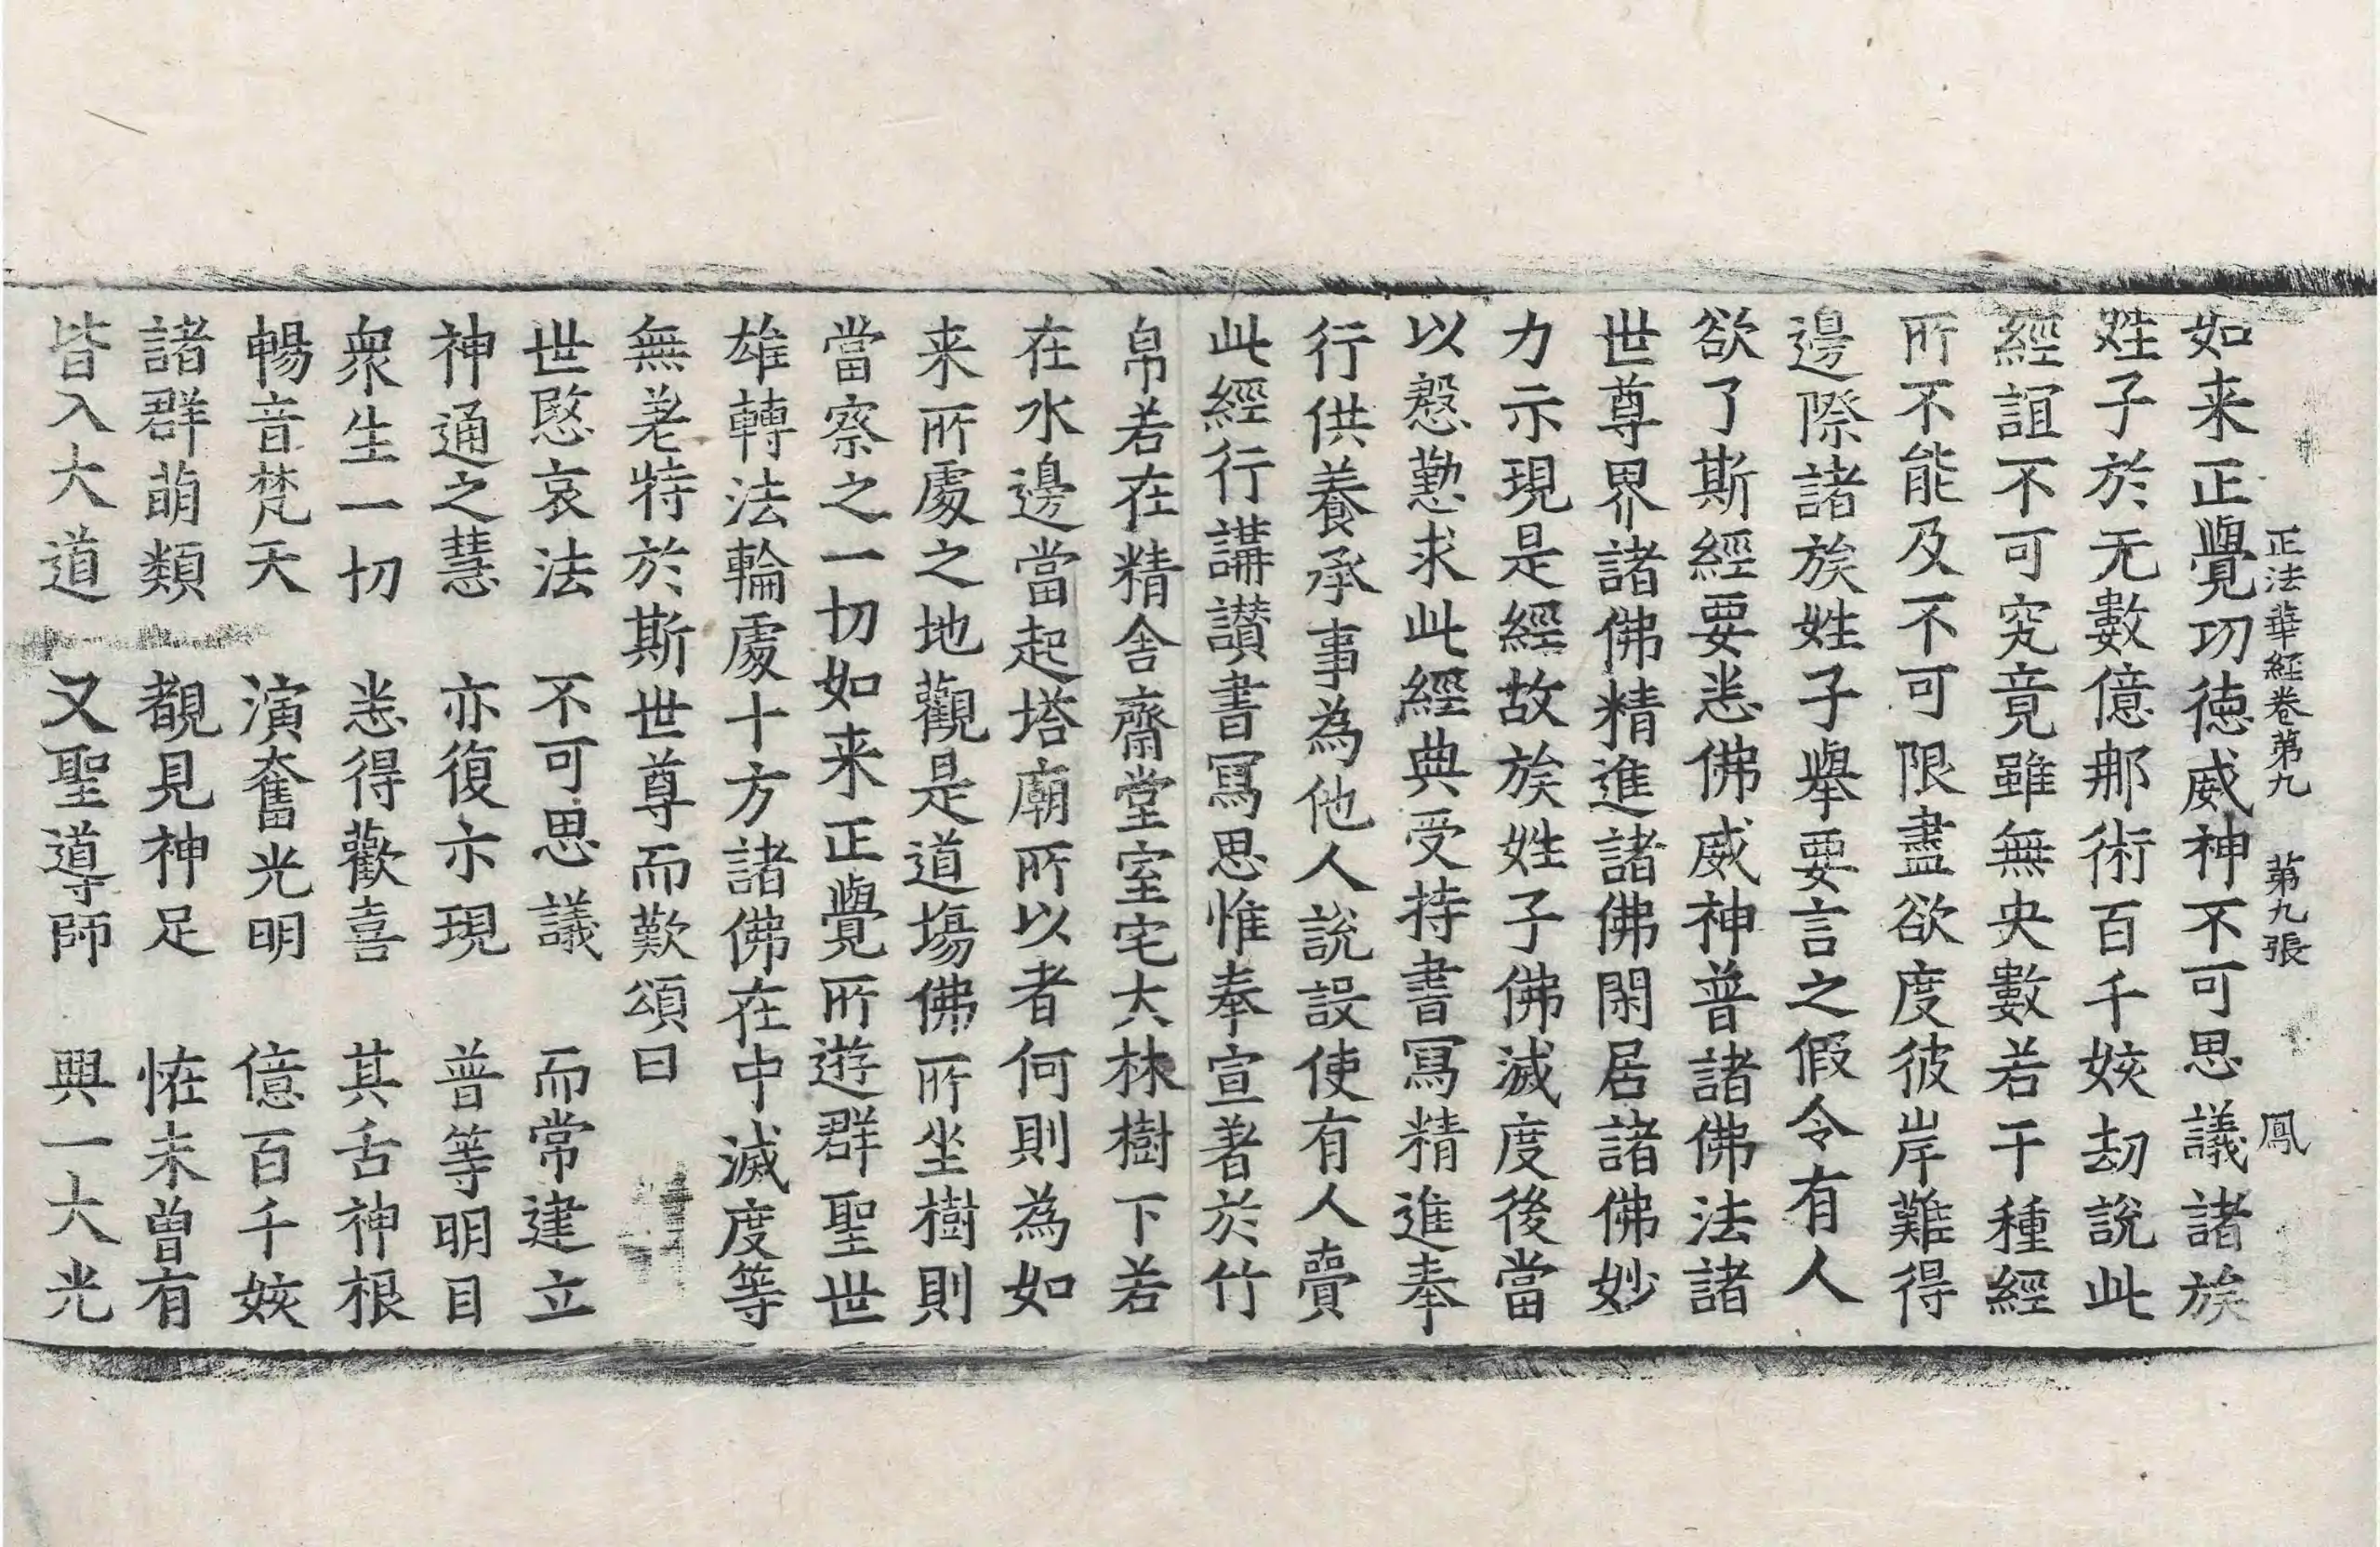 正法華經卷第九　第九張　鳳
如来正覺功徳威神不可思議諸族
姓子於无數億那術百千姟劫說此
經誼不可究竟雖無央數若干種經
所不能及不可限盡欲度彼岸難得
邊際諸族姓子舉要言之假令有人
欲了斯經要悉佛威神普諸佛法諸
世尊界諸佛精進諸佛閑居諸佛妙
力示現是經故族姓子佛滅度後當
以慇懃求此經典受持書冩精進奉
行供養承事為他人說設使有人賷
此經行講讃書冩思惟奉宣著於竹
帛若在精舎齋堂室宅大林樹下若
在水邊當起塔廟所以者何則為如
来所處之地觀是道塲佛所坐樹則
當察之一切如来正覺所遊群聖世
雄轉法輪處十方諸佛在中滅度等
無差特於斯世尊而歎頌曰
世愍哀法　不可思議　而常建立
神通之慧　亦復示現　普等明目
衆生一切　悉得歡喜　其舌神根
暢音梵天　演奮光明　億百千姟
諸群萌類　覩見神足　恠未曾有
皆入大道　又聖導師　興一大光